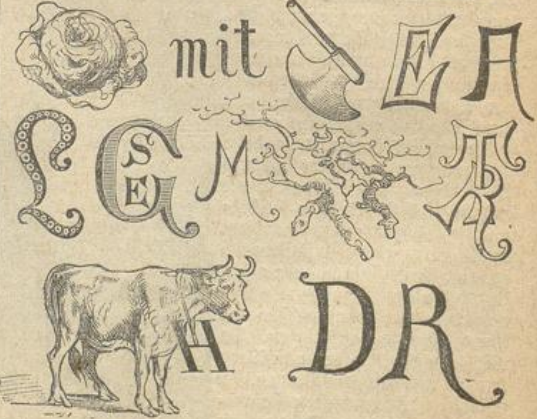 mit E A
L G SE M TR
H DR